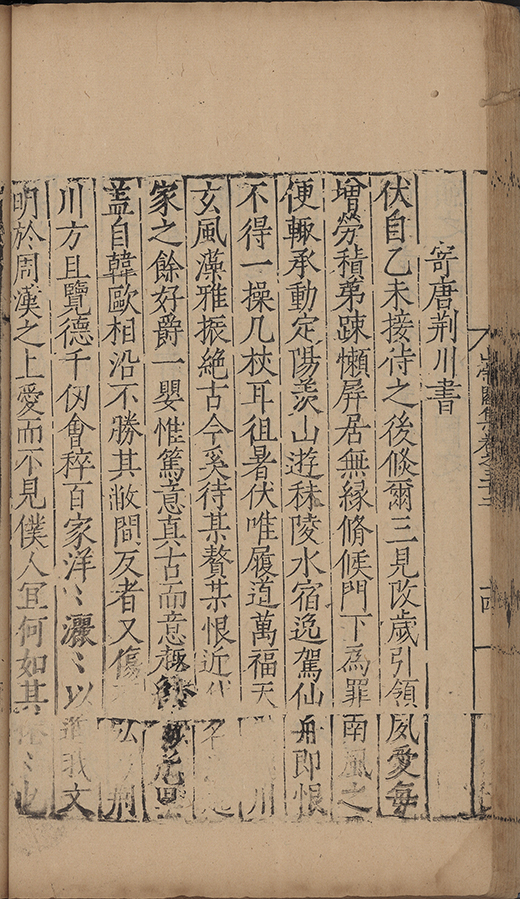 寄唐荆川書
伏自乙未接待之後倐爾三見改歲引領夙愛每
增勞積弟踈懶屏居無縁脩候門下為罪南風之
便輙承動定陽羡山遊秣陵水宿逸駕仙舟即恨
不得一操几杖耳徂暑伏唯履道萬福天川
玄風藻雅振絶古今奚待某贅某恨近代名
家之餘好爵一嬰惟篤意真古而意趣
盖自韓歐相沿不勝其敝間友者又傷弘荆
川方且覽德千仞會稡百家洋〻灑〻以我文
明於周漢之上愛而不見僕人宜何如其〻也